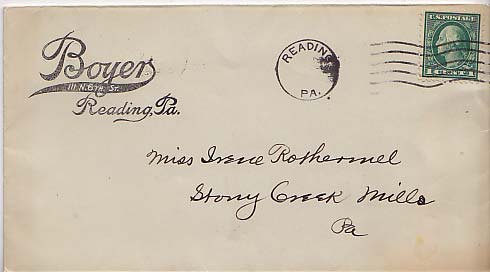 Boyer
111 N. 6TH. ST.
Reading, Pa.
READING
PA.
U.S. POSTAGE
Miss Irene Rothermel
Stony Creek Mills
Pa